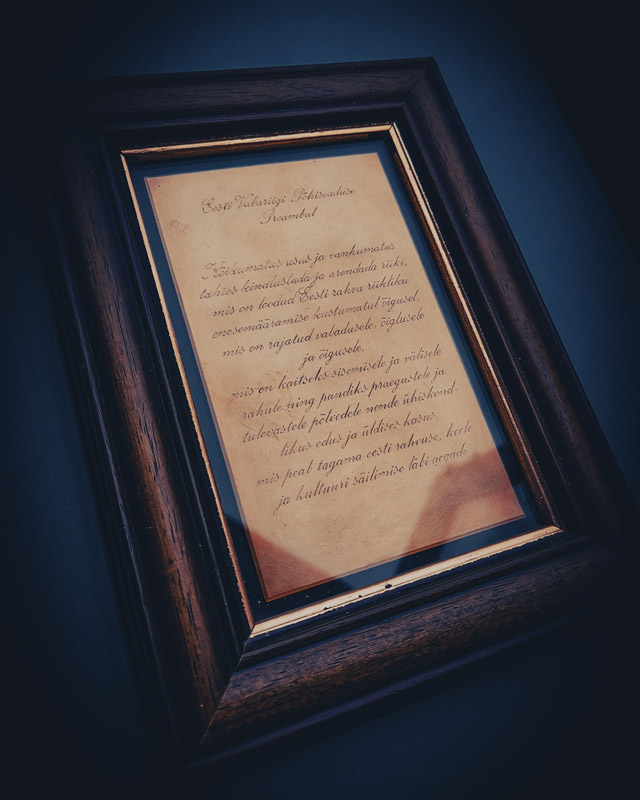 Eesti Vabariigi Põhiseaduse
Preambul
Kõikumatus usus ja vankumatus
tahtes kindlustada ja arendada riiki,
mis on loodud Eesti rahva riikliku
enesemääramise kustumatul õigusel,
mis on rajatud vabadusele, õiglusele
ja õigusele,
mis on kaitseks sisemisele ja välisele
rahule ning pandiks praegustele ja
tulevastele põlvedele nende ühiskond-
likus edus ja üldises kasus,
mis peab tagama eesti rahvuse, keele
ja kultuuri säilimise läbi aegade